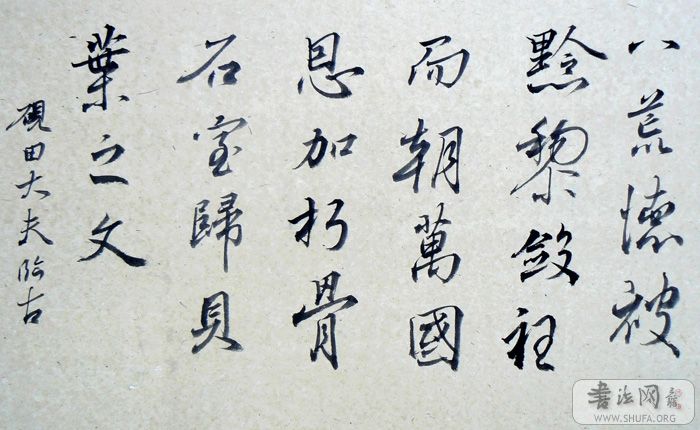 八荒德被
黔黎斂衽
而朝萬國
恩加朽骨
石室歸貝
葉之文
硯田大夫臨古
書法网
WWW.SHUFA.ORG